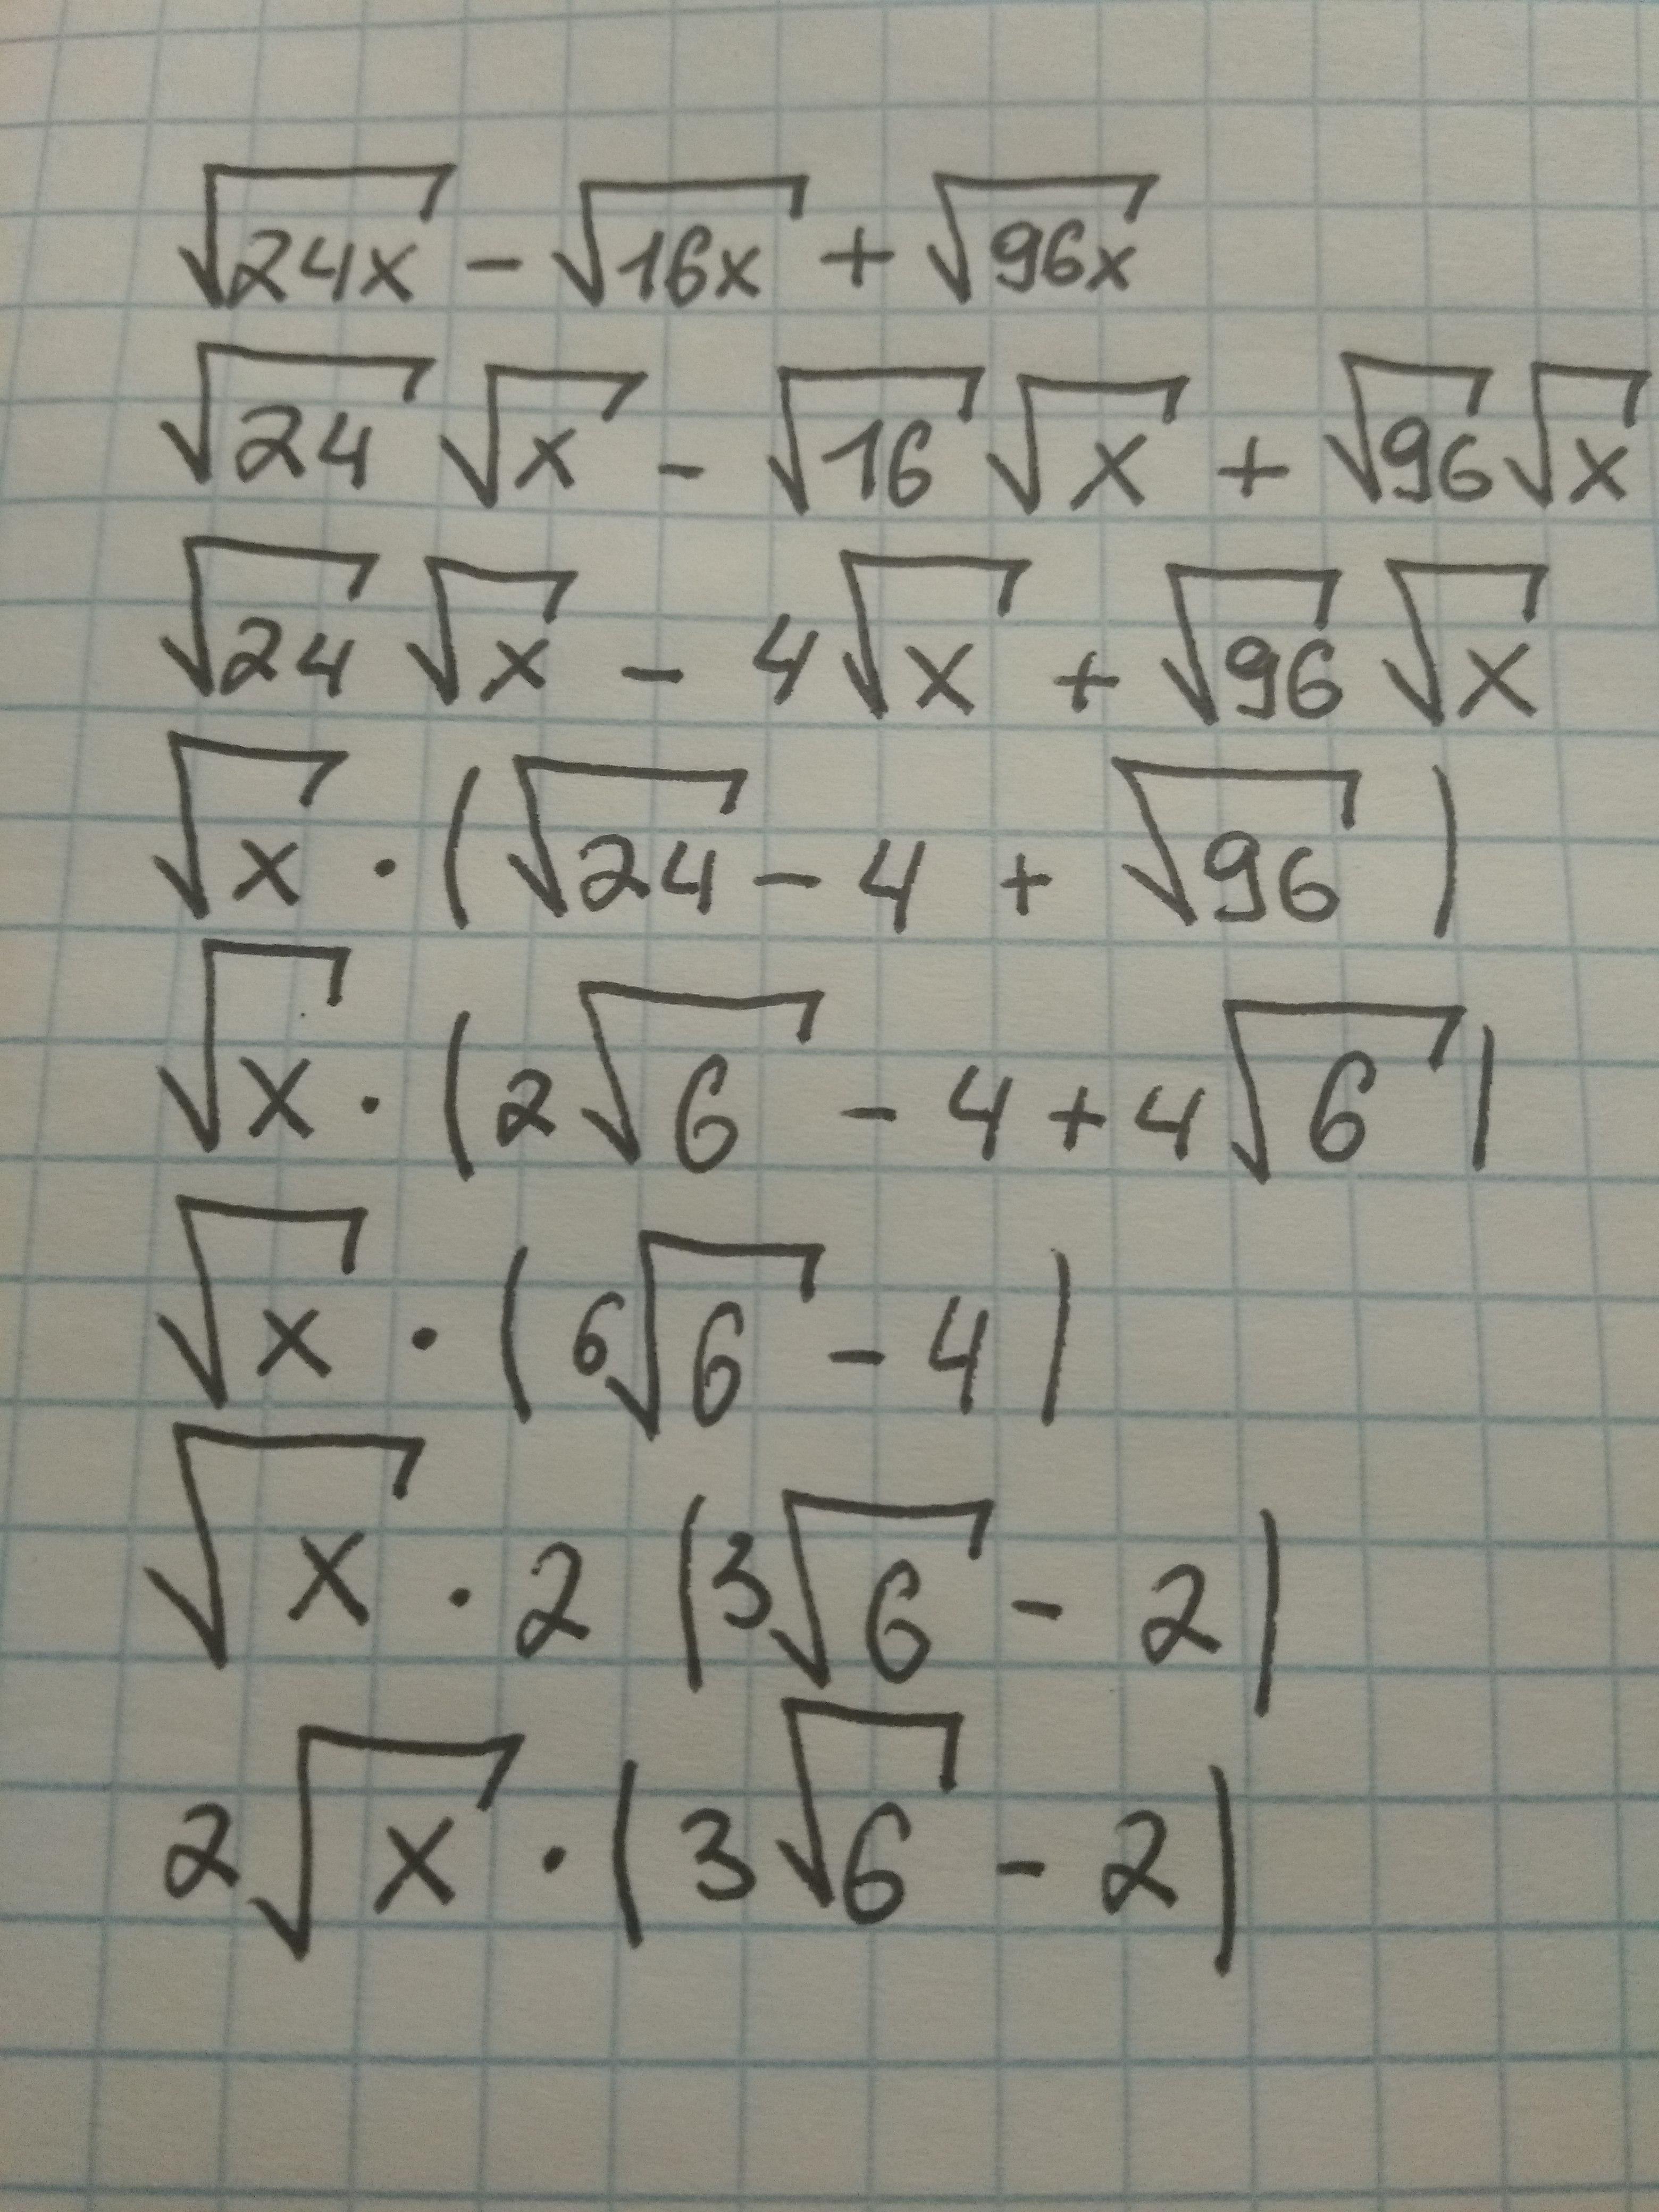 √24x - √16x + √96x
√24 √x - √16 √x + √96 √x
√24 √x - 4√x + √96 √x
√x · (√24 - 4 + √96)
√x · (2√6 - 4 + 4√6)
√x · (6√6 - 4)
√x · 2 (3√6 - 2)
2√x · (3√6 - 2)